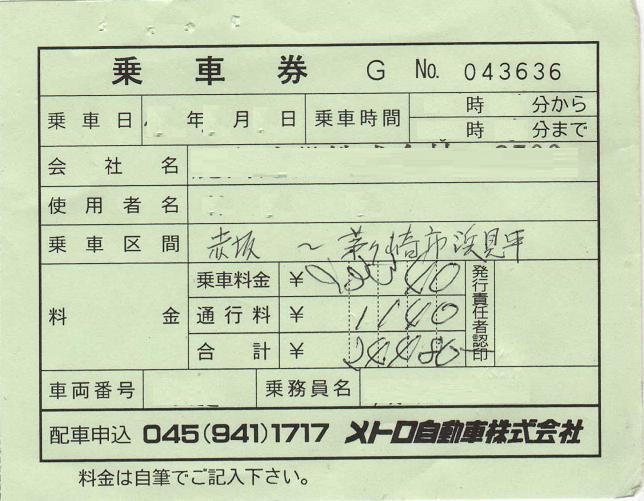 乗車券 G No. 043636
乗車日 年 月 日 乗車時間 時 分から
時 分まで
会社名
使用者名
乗車区間 赤坂 〜 茅ヶ崎市浜見平
料金 乗車料金 ¥ 発行責任者認印
通行料 ¥ 1140
合計 ¥ 24480
車両番号 乗務員名
配車申込 045(941)1717 メトロ自動車株式会社
料金は自筆でご記入下さい。